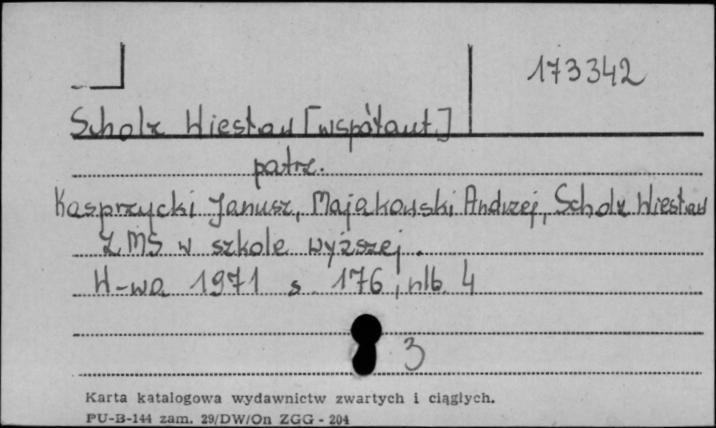 173342
Scholz Wiesław [współaut.]
patrz.
Kasprzycki Janusz, Majakowski Andrzej, Scholz Wiesław
ZMS w szkole wyższej.
W-wa 1971 s. 176, nlb. 4
3
Karta katalogowa wydawnictw zwartych i ciągłych.
PU-B-144 zam. 29/DW/On ZGG - 204